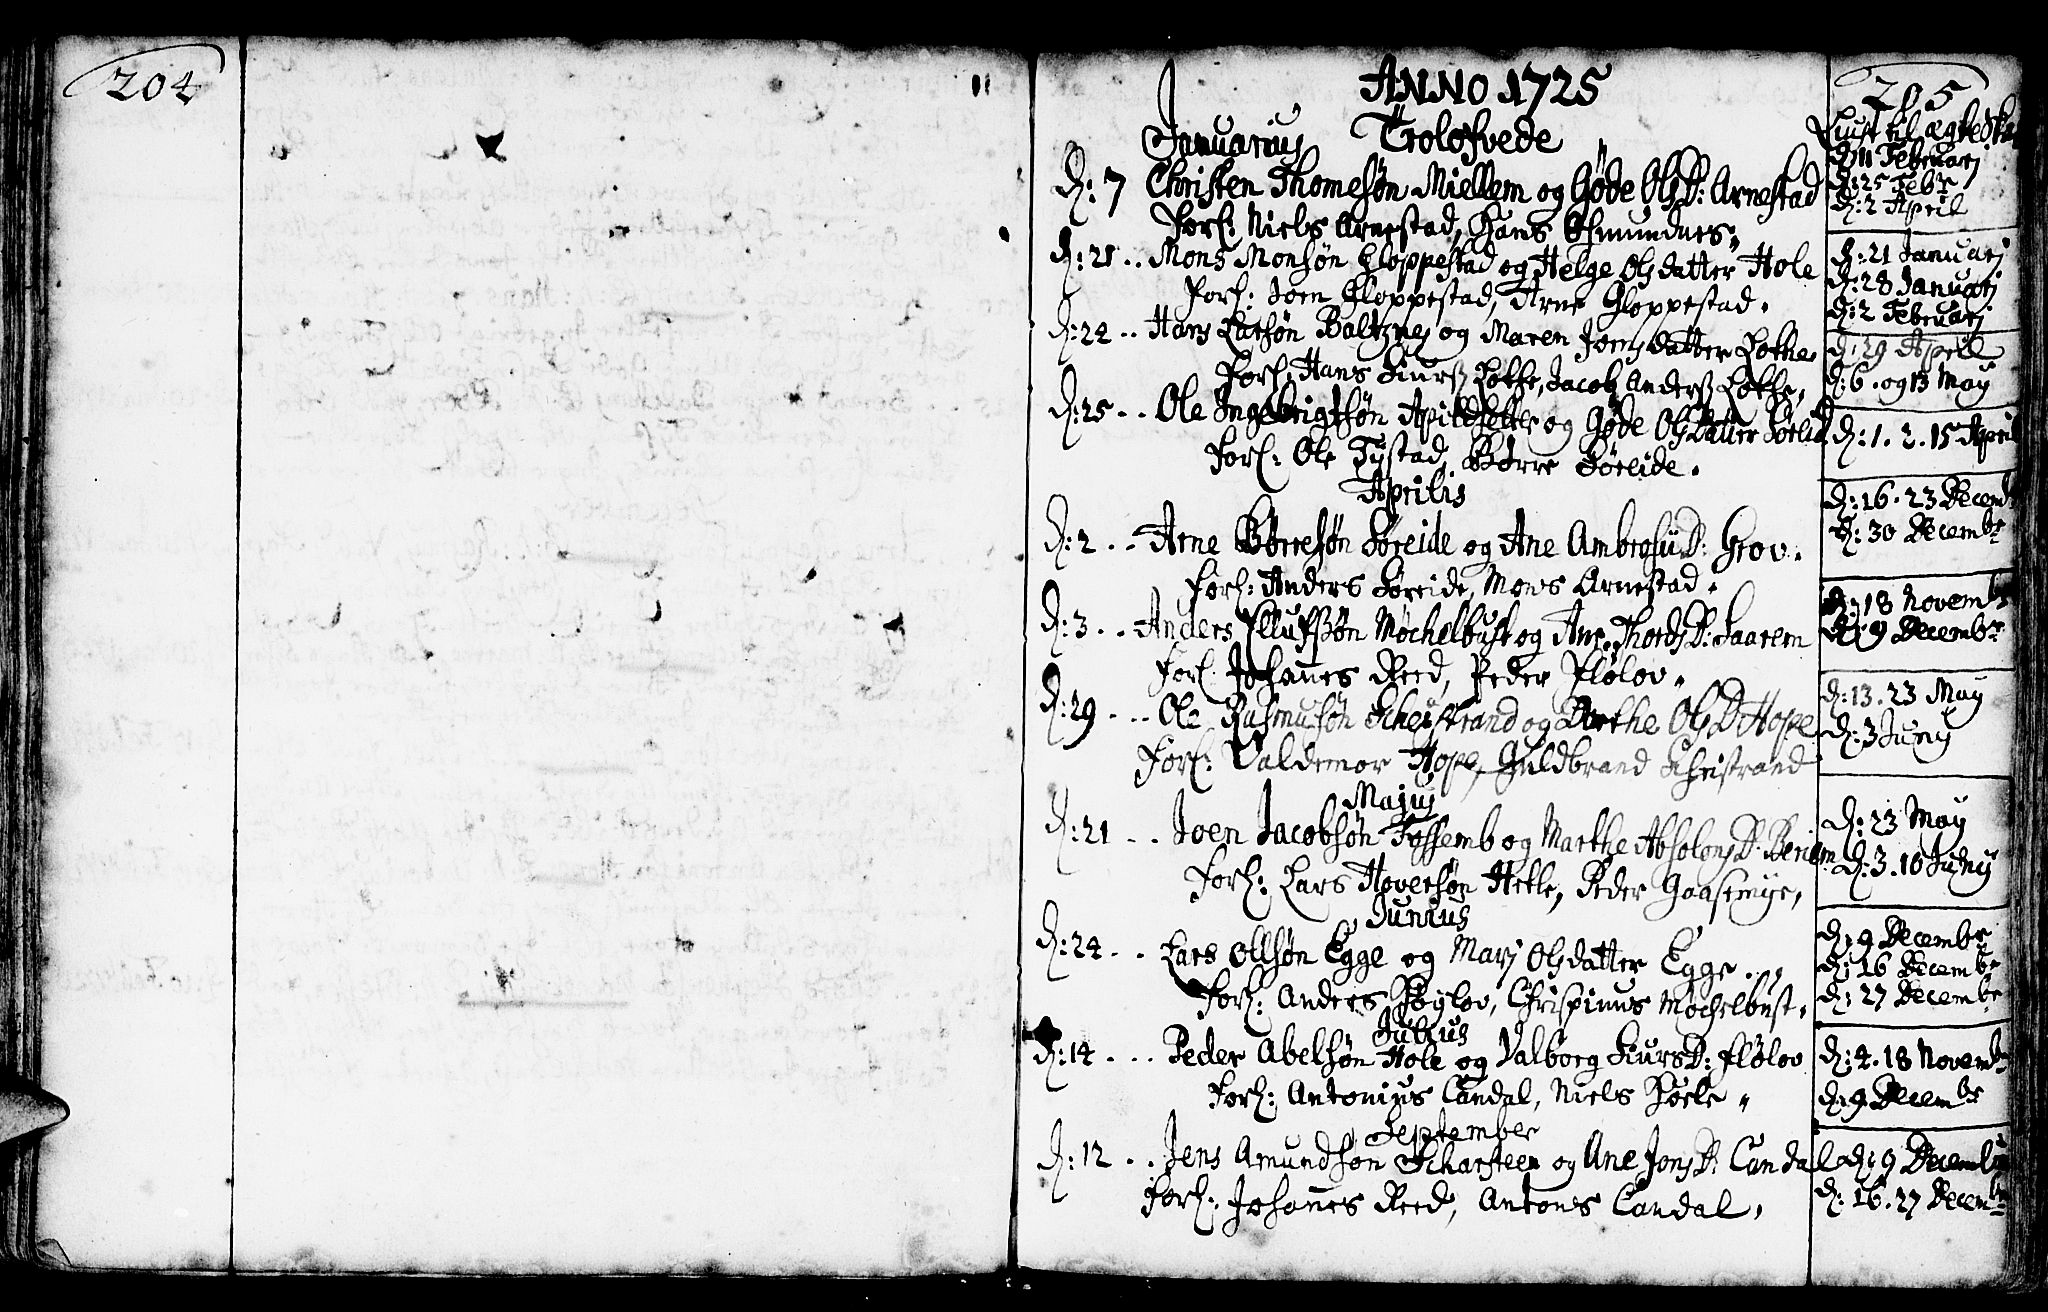 204
ANNO 1725
205
Januarius Trolofvede
Liust til ægteskab
D: 7 Christen Thomesøn Miellem og Gøde OlsD: Arnestad
D: 11 Februarj
D: 25 Febr
D: 2 April
Forl: Niels Arnestad, Hans
D: 21 .. Mons Monsøn Gloppestad og Helge Olsdatter Hole
D: 21 Januarj
D: 28 Januarj
D: 2 Februarj
Forl: Joen Gloppestad, Arne Gloppestad.
D: 22 .. Hans Larsøn Baltznes og Maren Joensdatter Lothe
D: 29 April
D: 6. og 13 May
Forl: Hans Siurß Lothe, Jacob Anderß Lothe,
D: 25 .. Ole Ingebrigtsøn og Gøde Olsdatter Søreid
D: 1. 2. 15 April
Forl: Ole Tystad, Børre Søreide.
Aprilis
D: 2 .. Arne Børresøn Søreide og Ane AmbrosiiD: Grov.
D: 16. 23 Decemb
D: 30 Decembr
Forl: Anders Søreide, Mons Arnestad.
D: 3 .. Anders Ellufsøn Møchelbust og Ane ThordsD: Saarem
D: 18 Novembr
D: 9 Decembr
Forl: Johannes Reed, Peder Flølov.
D: 29 ... Ole Rasmusøn Scheistrand og Berthe OlsD Hope
D: 13. 23 May
D: 3 Junij
Forl: Valdemor Hope, Guldbrand Scheistrand
Majus
D: 21 .. Joen Jacobsøn Fossemb og Marthe AbsolonsD: Beriem
D: 23 May
D: 3. 10 Junij
Forl: Lars Hoversøn Hetle, Peder Gaasemye,
Junius
D: 24 .. Lars Olsøn Egge og Marj Olsdatter Egge ..
D: 9 Decembr
D: 16 Decembr
D: 27 Decembr
Forl: Anders Høylov, Chrispinus Møchelbust.
Julius
D: 14 ... Peder Abelsøn Hole og Valborg SiursD: Flølov
D: 4. 18 Novemb
D: 9 Decembr
Forl: Antonius Candal, Niels Hoele
September
D: 12 .. Jens Amundsøn Scharsteen og Ane JonsD: Candal
D: 9 Decemb
D: 16. 27 Decemb
Forl: Johannes Reed, Antons Candal,